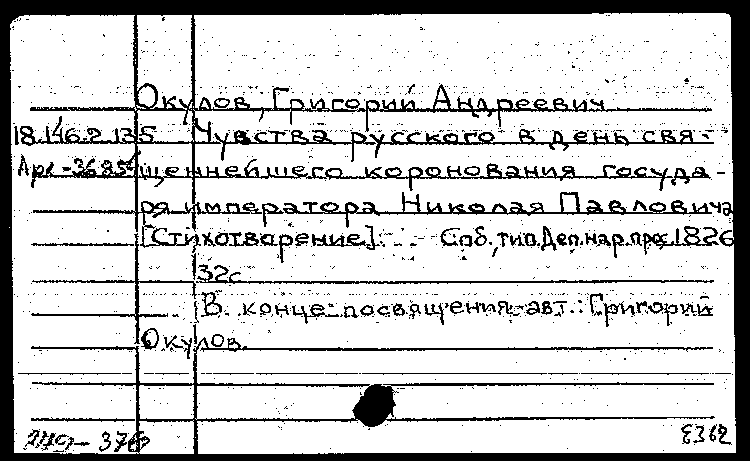 Окулов, Григорий Андреевич
18.146.2.135 Чувства русского в день свя-
щеннейшего коронования госуда-
ря императора Николая Павловича
[Стихотворение]. Спб., тип. Деп. нар. прос. 1826
32с
В конце посвящения авт.: Григорий
Окулов.
Е362